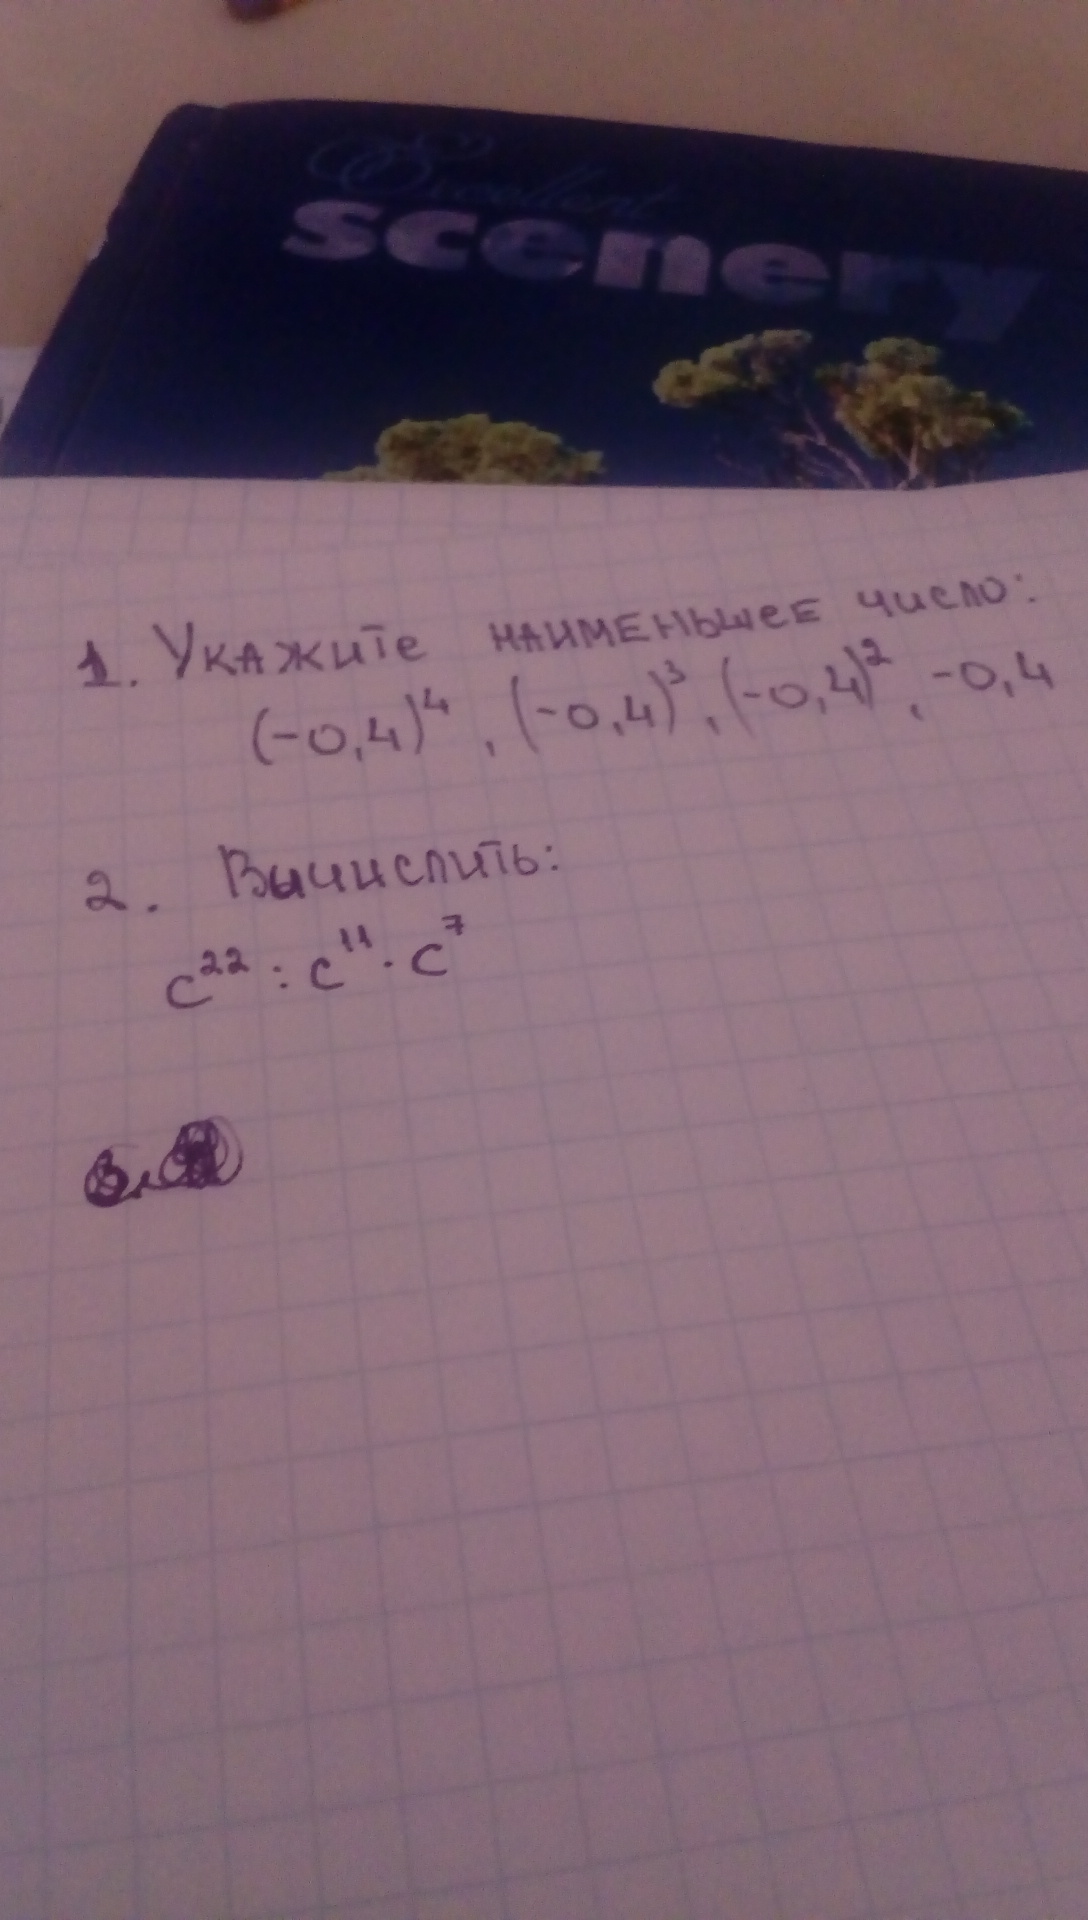 Excellent
scenery
1. Укажите наименьшее число:
(-0,4)⁴, (-0,4)³, (-0,4)², -0,4
2. Вычислить:
c²² : c¹¹ · c⁷